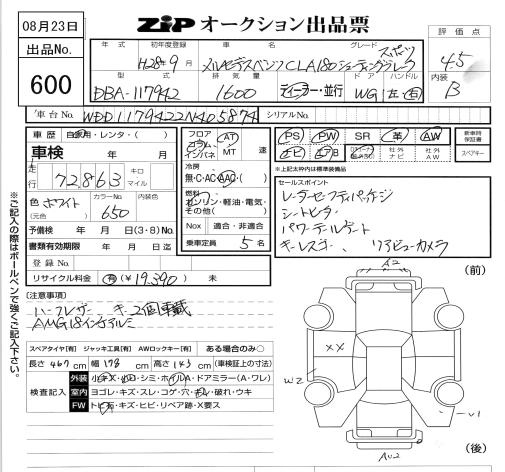 08月23日
ZIP オークション出品票
評価点
4.5
内装
B
出品No.
600
年式 初年度登録 車名 グレード
H28年9月 メルセデスベンツCLA180シューティングブレーク スポーツ
型式 排気量 ドア ハンドル
DBA-117942 1600 ディーラー・並行 WG 左・右
車台No. WDD1179422N405874 シリアルNo.
車歴 自家用・レンタ・( )
車検 年 月
走行 72,863 キロ マイル
色 ホワイト (元色) カラーNo. 650 内装色
予備検 年 月 日(3・8)No.
書類有効期限 年 月 日迄
登録No.
リサイクル料金 有(¥19,390) 未
フロア コラム インパネ AT MT 速
冷房 無・AC・AAC・( )
燃料 ガソリン・軽油・電気・その他( )
Nox 適合・非適合
乗車定員 5名
PS PW SR 革 AW 新車時保証書
ナビ エアB 社外ナビ 社外AW スペアキー
※上記太枠内は標準装備品
セールスポイント
レーダーセーフティパッケージ
シートヒーター
パワーテールゲート
キーレスゴー、リアビューカメラ
※ご記入の際はボールペンで強くご記入下さい。
(注意事項)
ハーフレザー キー2個車載
AMG18インチアルミ
スペアタイヤ【有】 ジャッキ工具【有】 AWロックキー【有】 ある場合のみ○
長さ 467cm 幅 178cm 高さ 143cm (車検証上の寸法)
検査記入
外装 小キズ・凹・シミ・ホイルA・ドアミラー(A・ワレ)
室内 ヨゴレ・キズ・スレ・コゲ・穴・破れ・ウキ
FW トビ石・キズ・ヒビ・リペア跡・X要ス
(前)
A2
XX
W2
U1
AU2
(後)